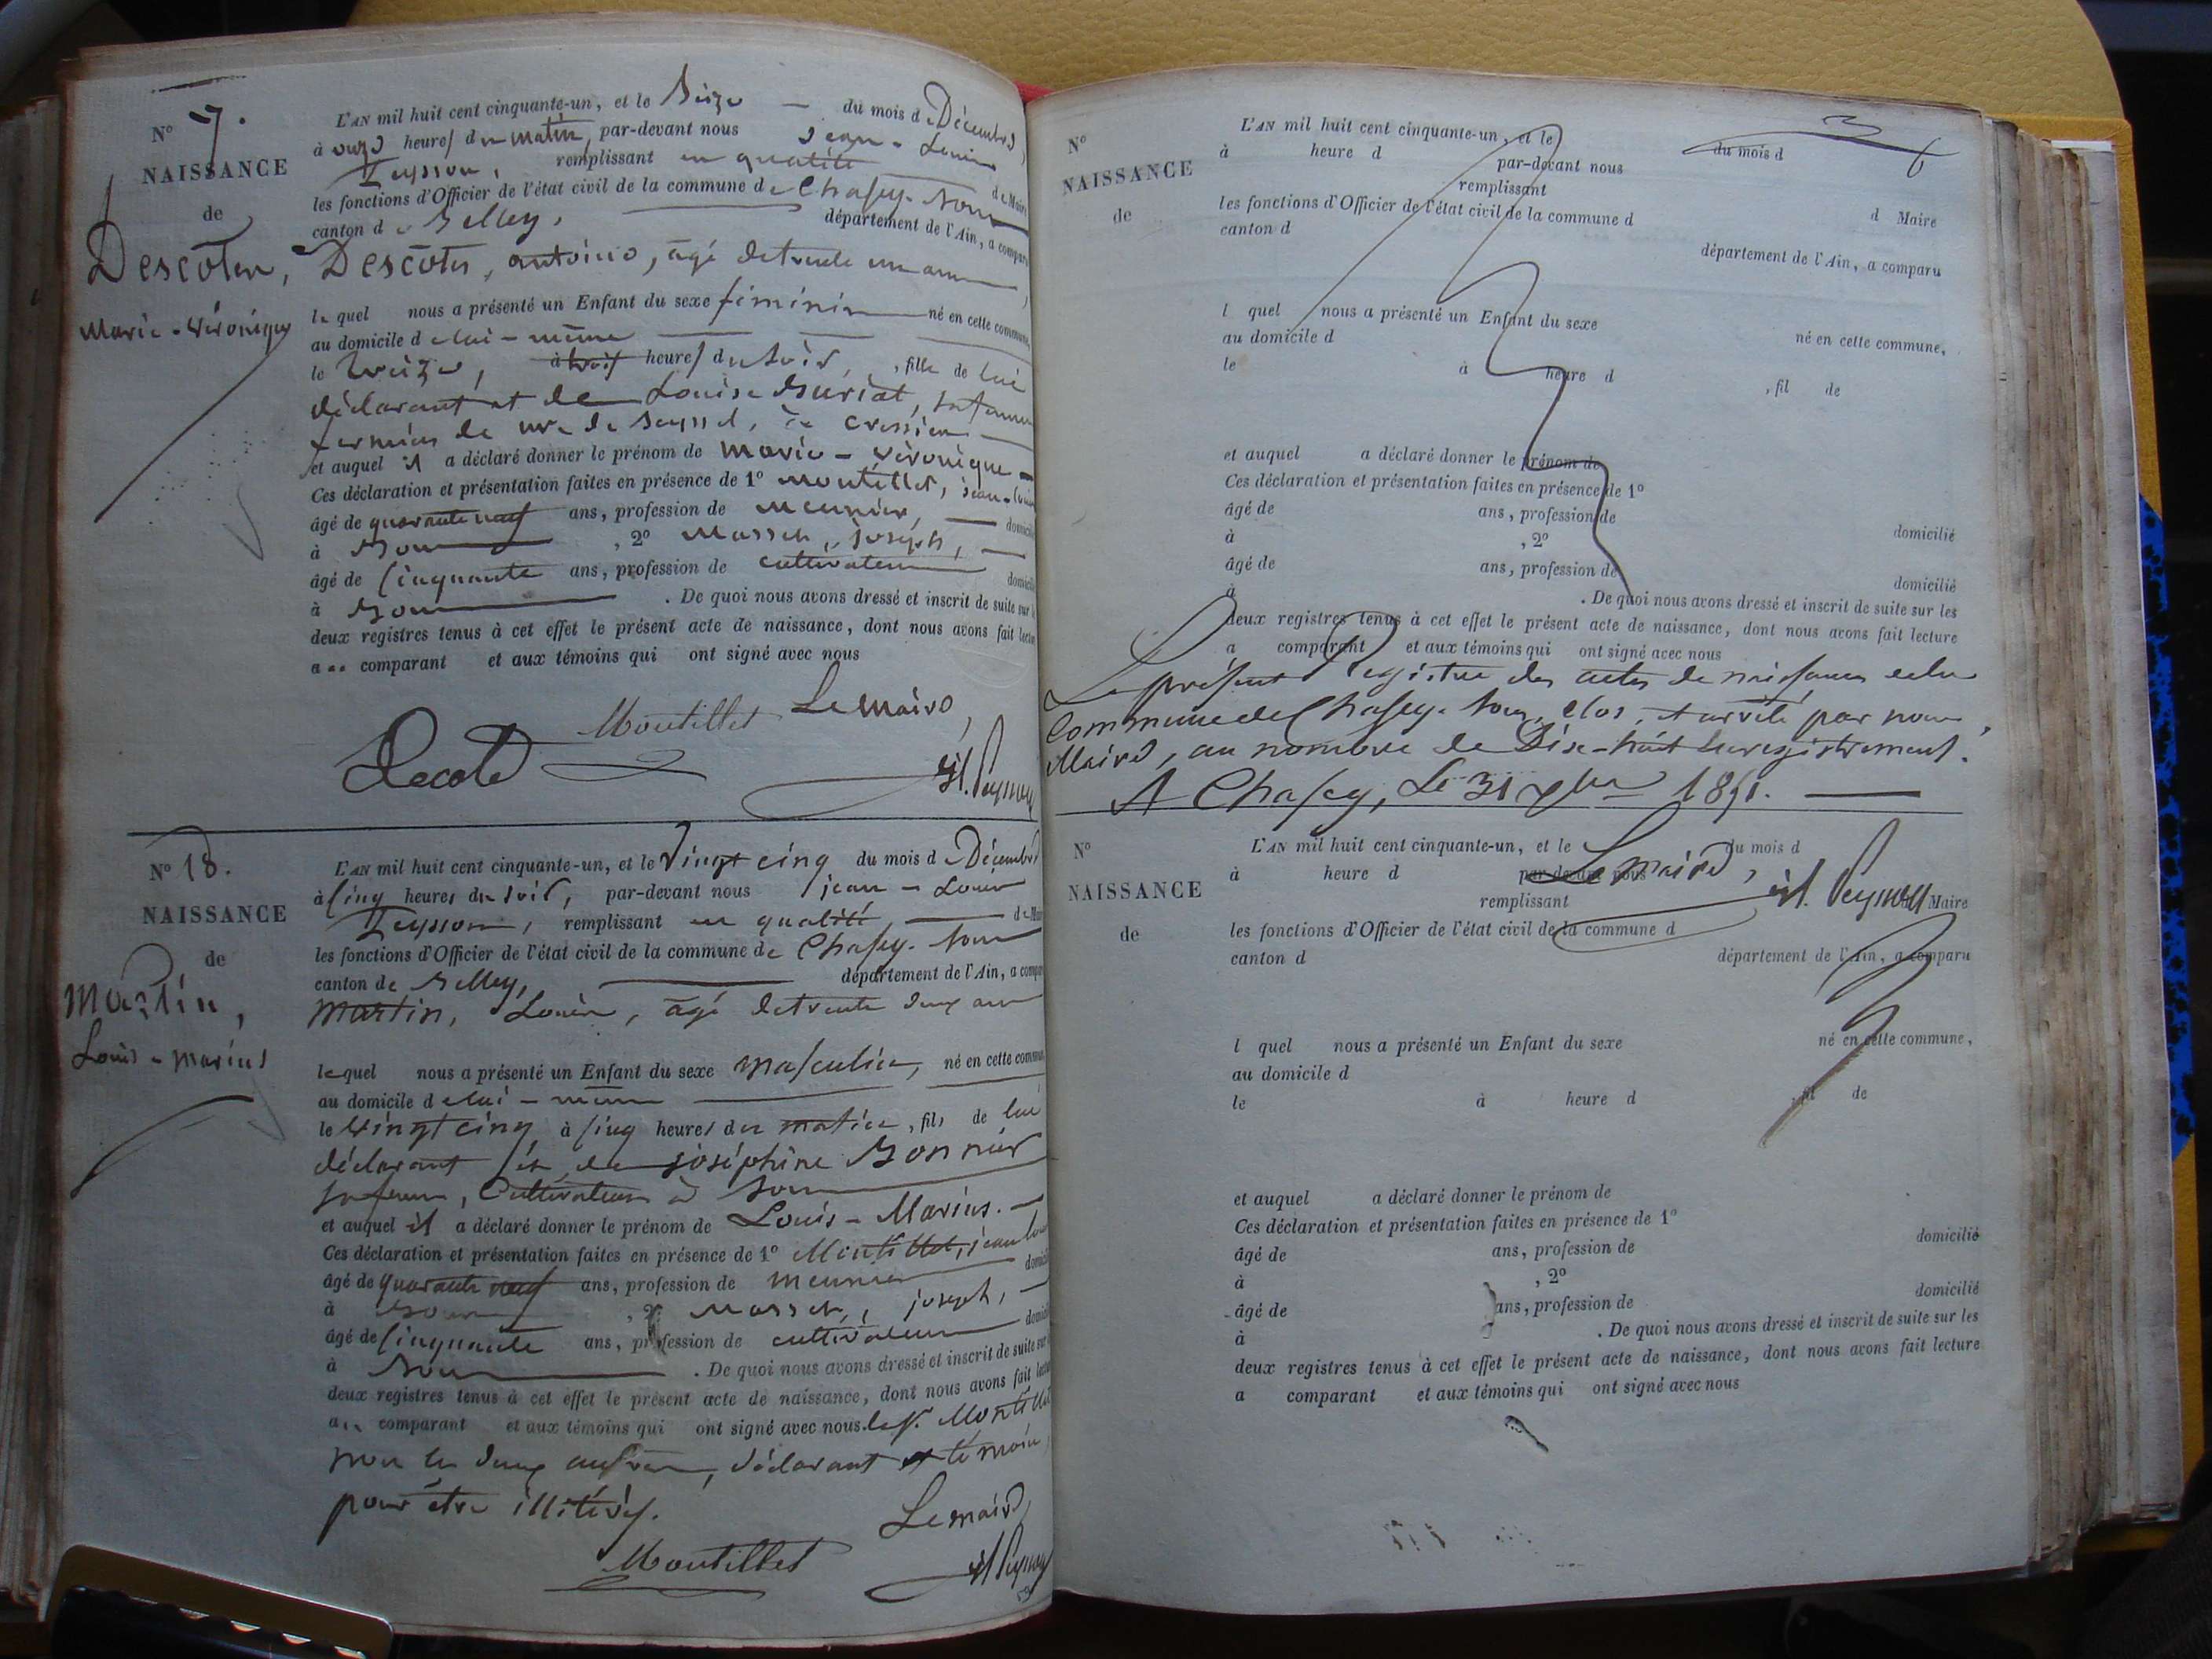 N° 7.
NAISSANCE
de
Descôtes,
Marie-Véronique
L'AN mil huit cent cinquante-un, et le Seize du mois de Décembre
à onze heures du matin, par-devant nous Jean-Louis
Peysson, remplissant en qualité de Maire
les fonctions d'Officier de l'état civil de la commune de Chasey-Bons
canton de Belley, département de l'Ain, a comparu
Descôtes, antoine, âgé de trente un ans,
lequel nous a présenté un Enfant du sexe féminin né en cette commune,
au domicile de lui-même
le treize, à trois heures du soir, fille de lui
déclarant et de Louise Buriat, sa femme
fermiers de de Seyssel, à Cressieu
et auquel il a déclaré donner le prénom de marie-véronique
Ces déclaration et présentation faites en présence de 1° Montillet, jean-louis
âgé de quarante neuf ans, profession de Meunier, domicilié
à Bons, 2° Masson, joseph,
âgé de Cinquante ans, profession de cultivateur domicilié
à Bons. De quoi nous avons dressé et inscrit de suite sur les
deux registres tenus à cet effet le présent acte de naissance, dont nous avons fait lecture
au comparant et aux témoins qui ont signé avec nous
Montillet Le Maire,
Decote
N° 18.
NAISSANCE
de
Martin,
Louis-Marius
L'AN mil huit cent cinquante-un, et le Vingt cinq du mois de Décembre
à Cinq heures du soir, par-devant nous jean-Louis
Peysson, remplissant en qualité de Maire
les fonctions d'Officier de l'état civil de la commune de Chasey-Bons
canton de Belley, département de l'Ain, a comparu
Martin, Louis, âgé de trente deux ans
lequel nous a présenté un Enfant du sexe masculin, né en cette commune
au domicile de lui-même
le Vingt cinq à Cinq heures du matin, fils de lui
déclarant et de joséphine Bonnier
sa femme, Cultivateurs à Bons
et auquel il a déclaré donner le prénom de Louis-Marius.
Ces déclaration et présentation faites en présence de 1° Montillet, jean louis
âgé de quarante neuf ans, profession de meunier domicilié
à Bons, 2° Masson, joseph,
âgé de Cinquante ans, profession de cultivateur domicilié
à Bons. De quoi nous avons dressé et inscrit de suite sur les
deux registres tenus à cet effet le présent acte de naissance, dont nous avons fait lecture
au comparant et aux témoins qui ont signé avec nous. le Sr. Montillet
non les deux autres, déclarant et témoin,
pour être illitérés.
Le maire,
Montillet
N°
NAISSANCE
de
L'AN mil huit cent cinquante-un, et le du mois d
à heure d par-devant nous
remplissant d Maire
les fonctions d'Officier de l'état civil de la commune d
canton d département de l'Ain, a comparu
l quel nous a présenté un Enfant du sexe né en cette commune,
au domicile d
le à heure d , fil de
et auquel a déclaré donner le prénom de
Ces déclaration et présentation faites en présence de 1°
âgé de ans, profession de domicilié
à , 2°
âgé de ans, profession de domicilié
à . De quoi nous avons dressé et inscrit de suite sur les
deux registres tenus à cet effet le présent acte de naissance, dont nous avons fait lecture
a comparant et aux témoins qui ont signé avec nous
Le présent Registre des actes de naissances de la
Commune de Chasey-Bons, clos, et arrêté par nous
Maire, au nombre de Dix-huit Enregistrement.
A Chasey, Le 31 Xbre 1851.
N°
NAISSANCE
de
L'AN mil huit cent cinquante-un, et le du mois d
à heure d par-devant nous
Le maire,
remplissant d Maire
les fonctions d'Officier de l'état civil de la commune d
canton d département de l'Ain, a comparu
l quel nous a présenté un Enfant du sexe né en cette commune,
au domicile d
le à heure d , fil de
et auquel a déclaré donner le prénom de
Ces déclaration et présentation faites en présence de 1°
âgé de ans, profession de domicilié
à , 2°
âgé de ans, profession de domicilié
à . De quoi nous avons dressé et inscrit de suite sur les
deux registres tenus à cet effet le présent acte de naissance, dont nous avons fait lecture
a comparant et aux témoins qui ont signé avec nous